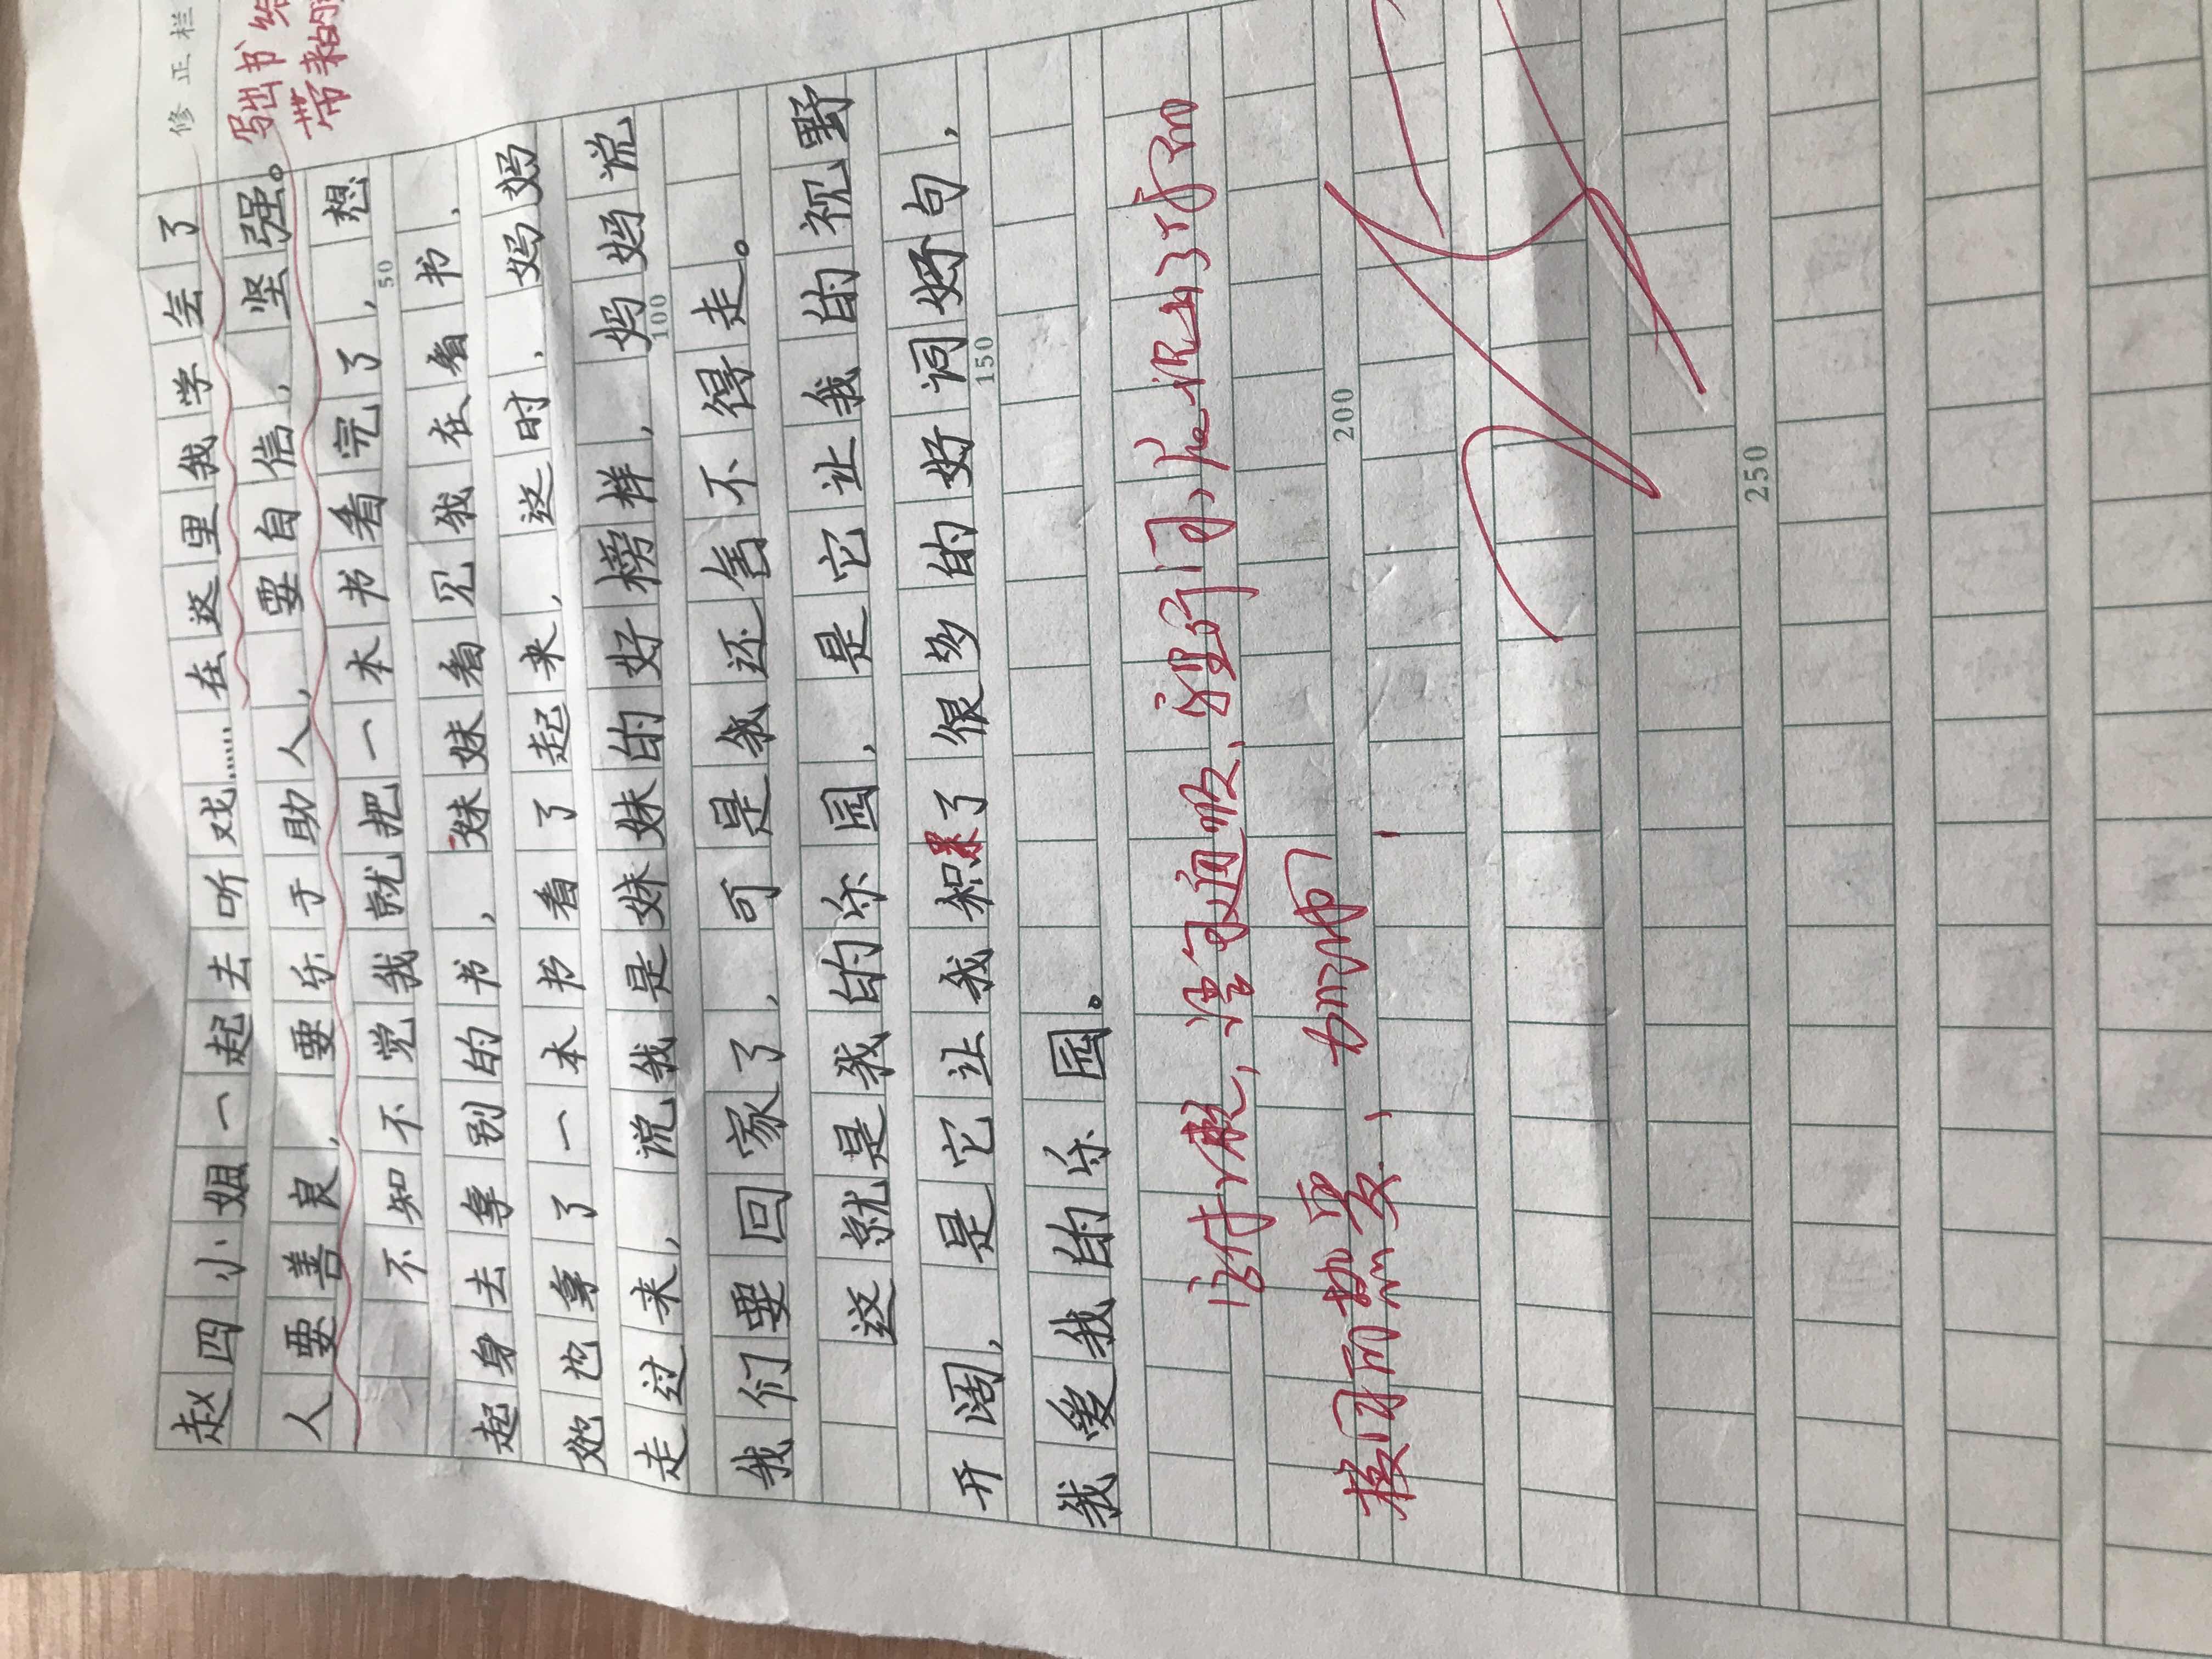 修正栏
赵四小姐一起去听戏……在这里我学会了
人要善良，要乐于助人，要自信，坚强。
写出书给
带来的
不知不觉我就把一本书看完了，想
50
起身去拿别的书，妹妹看见我在看书，
她也拿了一本书看了起来，这时，妈妈
走过来，说我是妹妹的好榜样，妈妈说
100
我们要回家了，可是我还舍不得走。
这就是我的乐园，是它让我的视野
开阔，是它让我积累了很多的好词好句，
150
我爱我的乐园。
语句通顺
200
热爱，加油
250